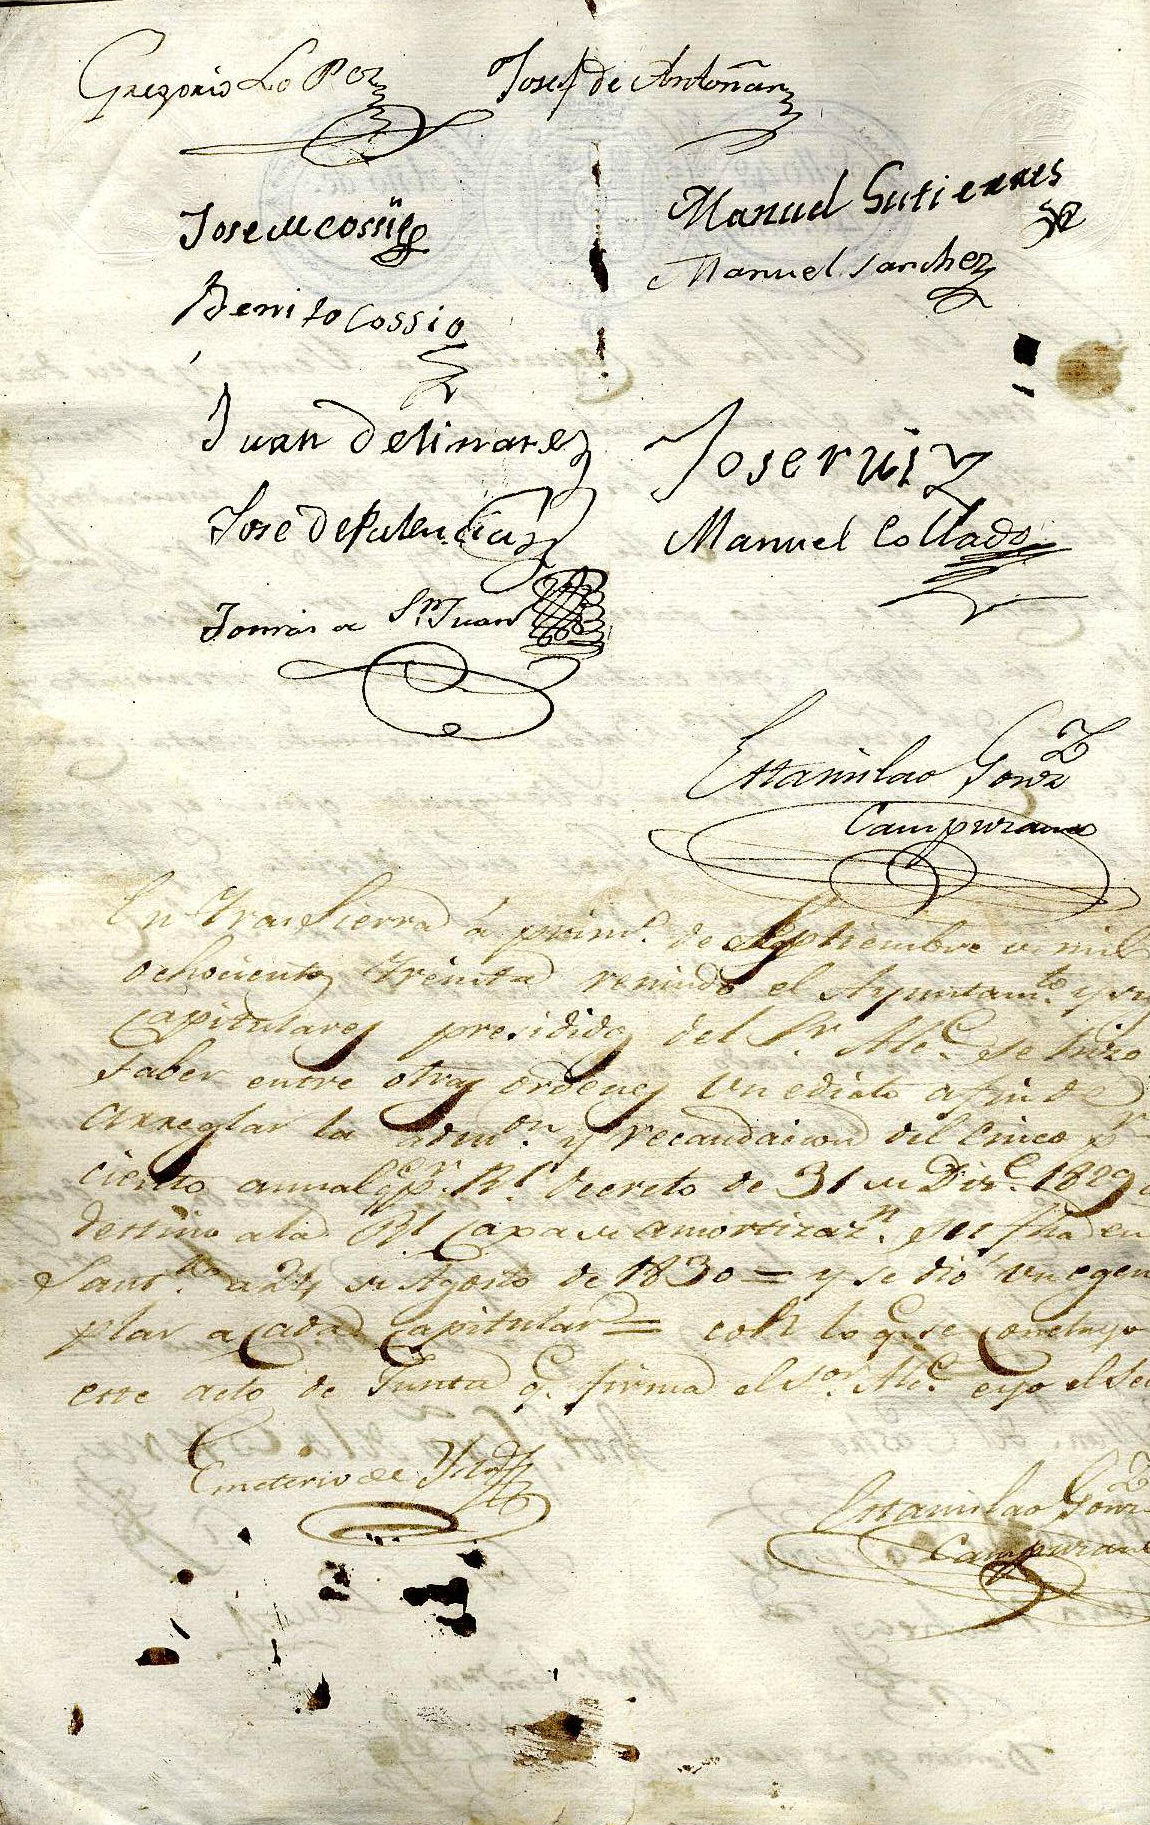 Gregorio Lo Pez
Josef de Antoñan
Manuel Gutierrres
Jose M Cossii
Manuel Sanchez
Benito Cossio
Juan Delinarez
Jose ruiz
Jose De Palencia
Manuel Collado
Tomas de Sn Juan
Estanislao Gonz
Campuzano
En tra Sierra á prim.o de Septiembre de mil
ochocientos treinta reunido el Ayuntam.to y sus
capitulares presididos del Sr. Alc.e se hizo
saber entre otras ordenes un edicto a fin de
arreglar la adm.on y recaudacion del cinco pr
ciento anual pr. Rl. decreto de 31 de Dic.e 1829
destino a la Rl Caxa de amortizaz.n su fha en
Sant.er a 24 de Agosto de 1830 = y se dio un egem
plar a cada Capitular = con lo q.e se concluyo
este acto de Junta q.e firma el Sor. Alc.e eyo el Sec
Emeterio de
Estanislao Gonz
Campuzano